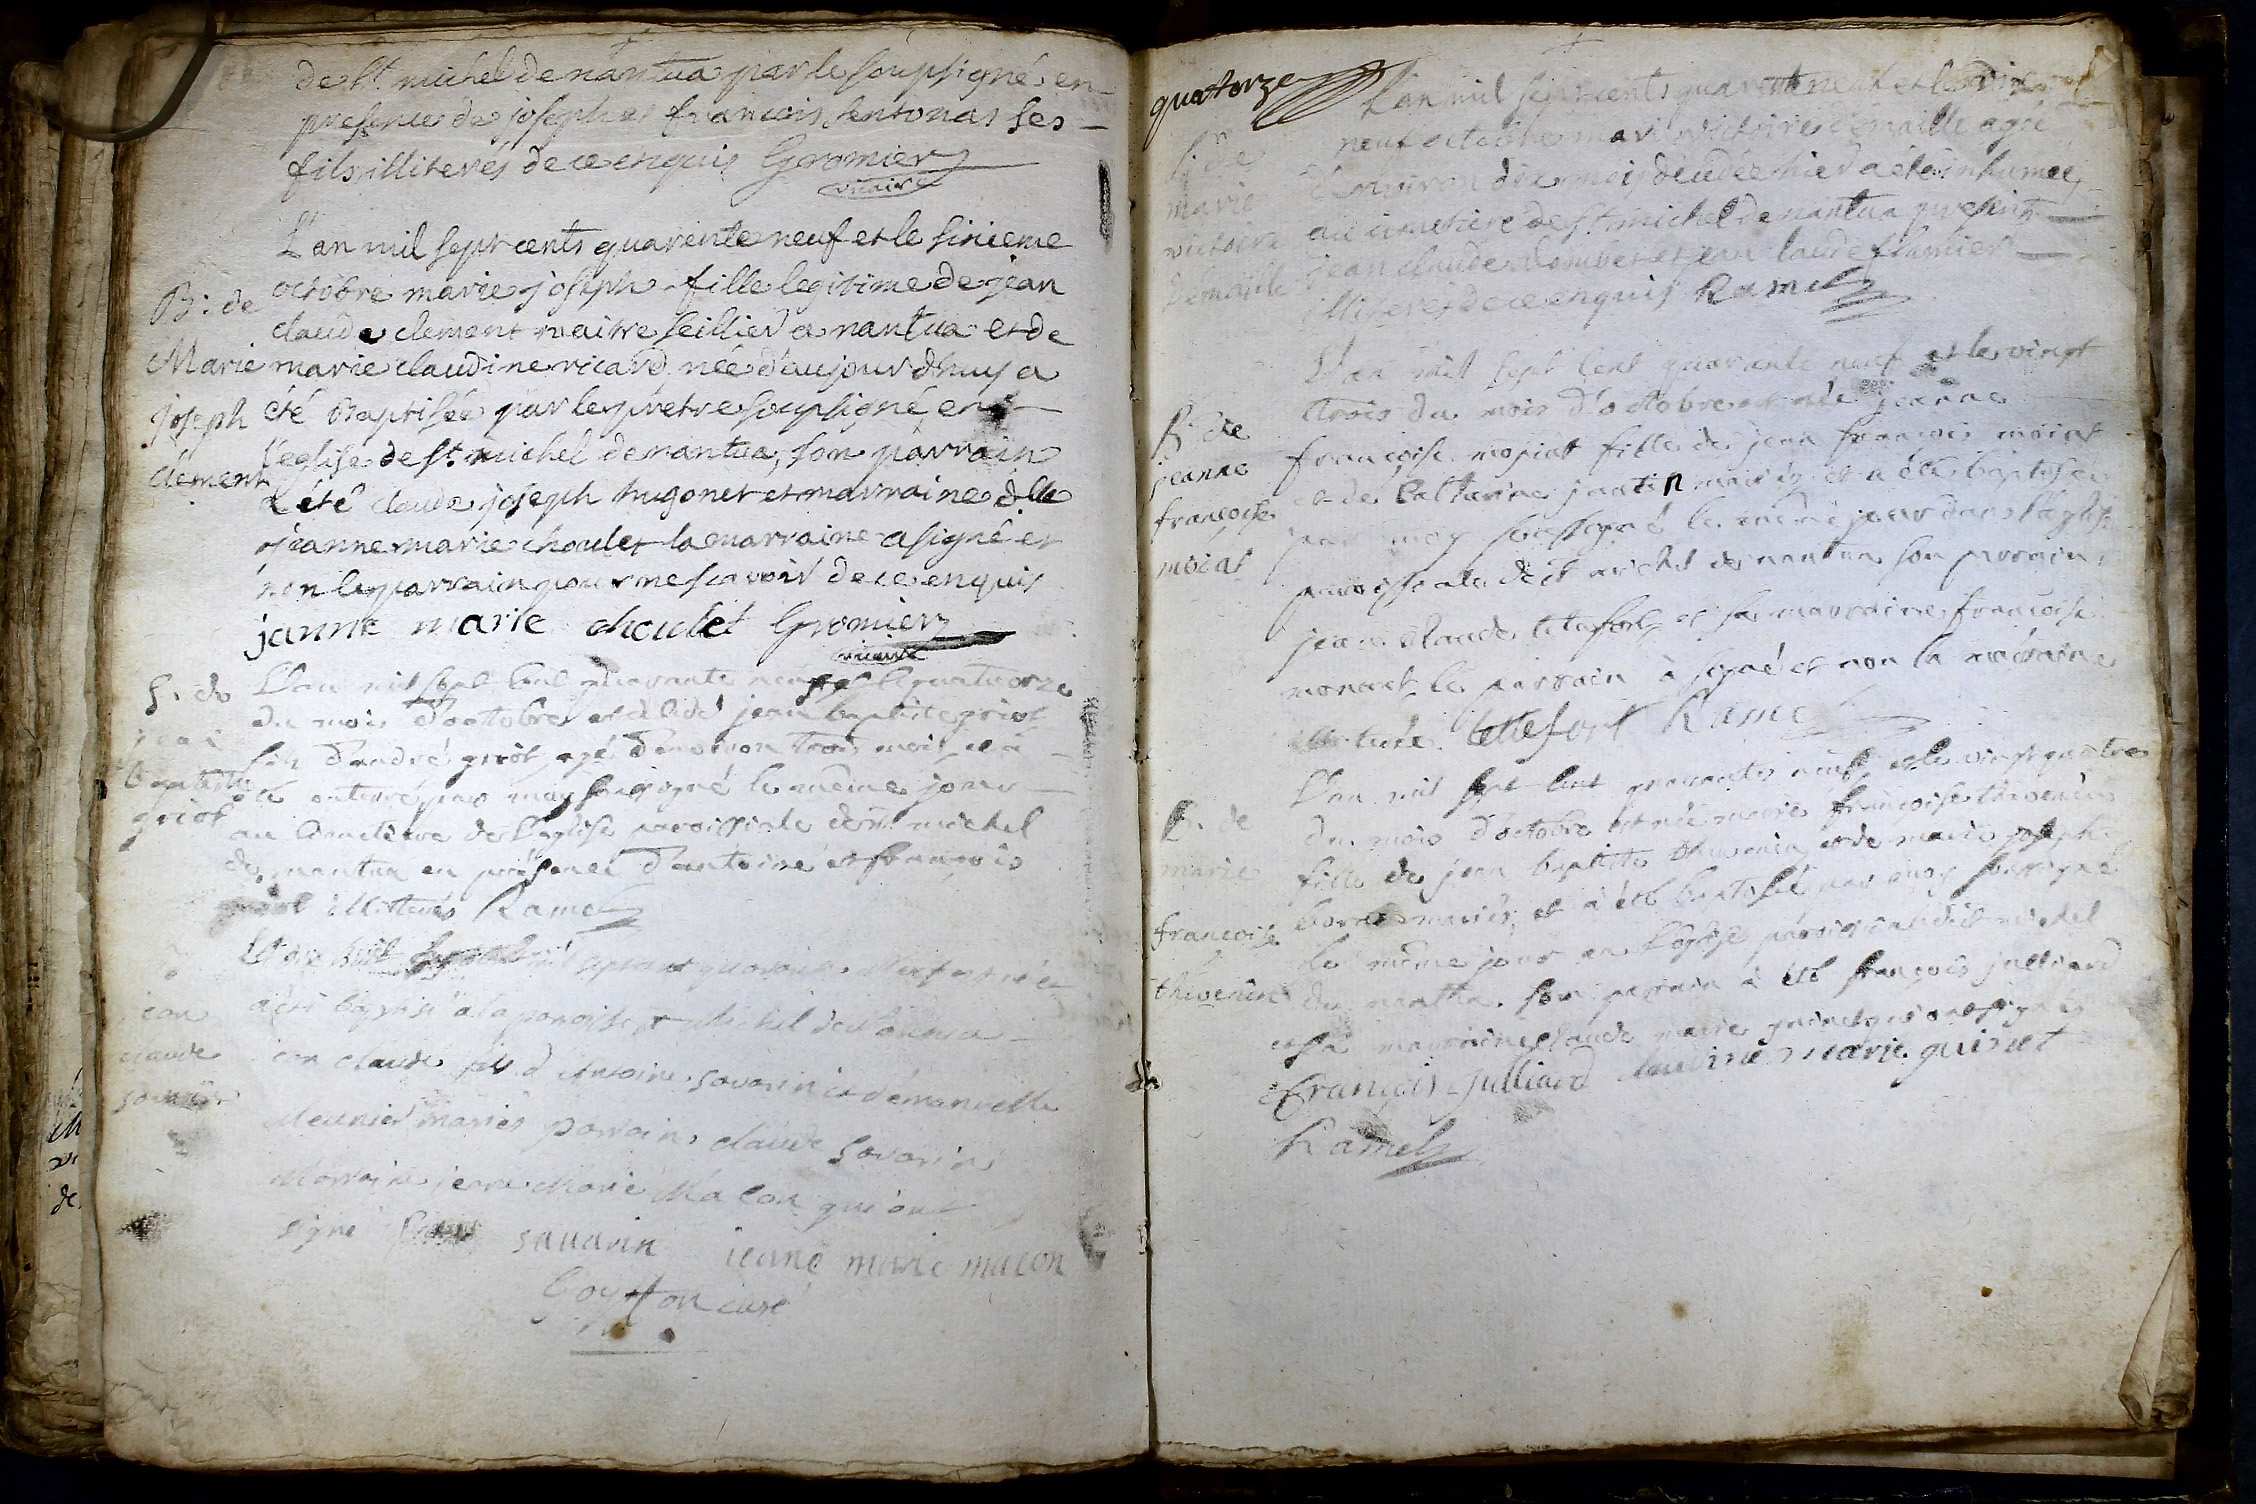 de st. michel de nantua par le soupsigné en
presence de joseph et francois sentonas ses
fils illiterés de ce enquis Gromier
vicaire
L'an mil sept cents quarente neuf et le sixieme
octobre marie joseph fille legitime de jean
B: de
claude clement maitre seillier a nantua et de
Marie
marie claudine ricard, née d'aujourdhuy a
joseph
été Baptisée par le pretre soupsigné en
clement
l'eglise de st. michel de nantua, son parrain
a été claude joseph hugonet et marraine dlle
jeanne marie choulet la marraine a signé et
non le parrain pour ne scavoir de ce enquis
janne marie choulet Gromier
vicaire
S. de
L'an mil sept cent quarante neuf et le quatuorze
du mois d'octobre est decedé jean baptiste griot
jean
fils d'andré griot agé d'environ trois mois et a
baptiste
été enterré par moy soussigné le même jour
griot
au cimetiere de l'eglise paroissiale de st. michel
de nantua en presence d'antoine et françois
griot illitterés Ramel
Le dix huit mil sept cent quarante neuf est né et
a été baptisé a la paroisse st Michel de Nantua
jean
claude
jean claude fils d'Antoine savarin et d'émanuelle
savarin
Meunier mariés parrain claude savarin
Marraine jeane Marie Macon qui ont
signé savarin jeane marie macon
Goyffon curé
quatorze
L'an mil sept cents quarente neuf et le dix
neuf octobre marie victoire demaille agée
S. de
d'environ dix mois décédée hier a été inhumée
marie
au cimetiere de st. michel de nantua presents
victoire
jean claude doubet et jean claude flumier
demaille
illiterés de ce enquis Ramel
L'an mil sept cent quarante neuf et le vingt
trois du mois d'octobre est née jeanne
B. de
françoise moziat fille de jean françois moziat
jeanne
et de Catherine jantin mariés et a été baptisée
françoise
par moy soussigné le même jour dans l'eglise
moziat
paroissiale de st michel de nantua son parrain
jean claude tettefort et sa marraine françoise
monnet le parrain a signé et non la marraine
illiterée tettefort Ramel
L'an mil sept cent quarante neuf et le vingt quatre
B. de
du mois d'octobre est née marie françoise thevenin
marie
fille de jean baptiste thevenin et de marie joseph
mariés, et a été baptisée par moy soussigné
françoise
le même jour en l'eglise paroissiale de st michel
thevenin
de nantua. son parrain a été françois julliard
et sa marraine claude marie guinet qui ont signés
françois julliard claudine marie guinet
Ramel